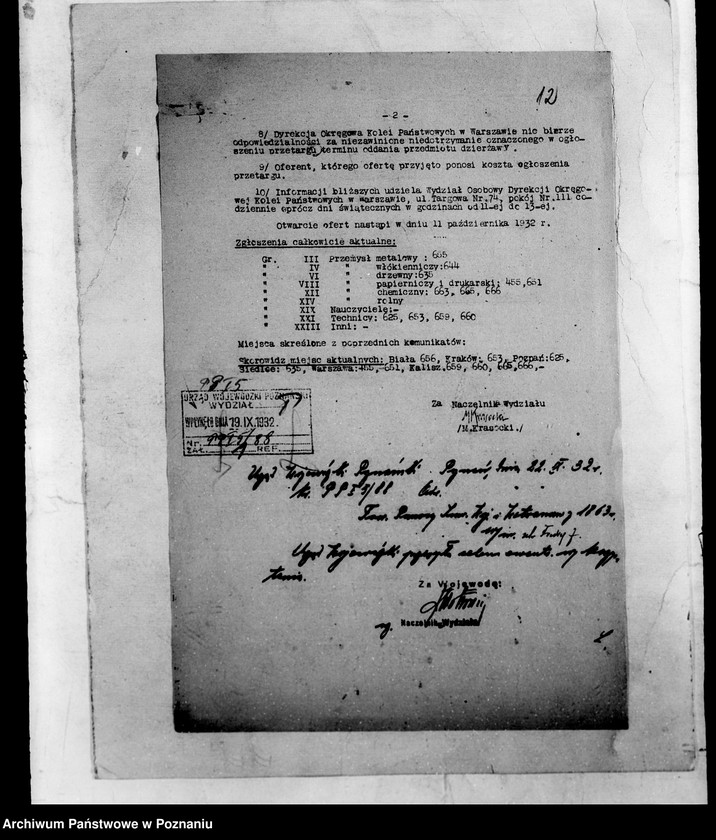 12
- 2 -
8/ Dyrekcja Okręgowa Kolei Państwowych w Warszawie nie bierze
odpowiedzialności za niezawinione niedotrzymanie oznaczonego w ogło-
szeniu przetargu terminu oddania przedmiotu dzierżawy.
9/ Oferent, którego ofertę przyjęto ponosi koszta ogłoszenia
przetargu.
10/ Informacji bliższych udziela Wydział Osobowy Dyrekcji Okręgo-
wej Kolei Państwowych w Warszawie, ul.Targowa Nr.74, pokój Nr.111 co-
dziennie oprócz dni świątecznych w godzinach od 11-ej do 13-ej.
Otwarcie ofert nastąpi w dniu 11 października 1932 r.
Zgłoszenia całkowicie aktualne:
Gr. III Przemysł metalowy : 655
" IV " włókienniczy:644
" VI " drzewny:635
" VIII " papierniczy i drukarski: 455,651
" XII " chemiczny: 663, 665, 666
" XIV " rolny
" XIX Nauczyciele:-
" XXI Technicy: 625, 653, 659, 660
" XXIII Inni: -
Miejsca skreślone z poprzednich komunikatów:
Skorowidz miejsc aktualnych: Biała 656, Kraków: 653, Poznań:625,
Siedlce: 635, Warszawa:455, 651, Kalisz.659, 660, 665,666,-
9815
URZĄD WOJEWÓDZKI POZNAŃSKI
WYDZIAŁ
WPŁYNĘŁO DNIA 19.IX.1932.
Nr.
ZAŁ. REF.
Za Naczelnika Wydziału
/M.Krasocki./
Urząd Wojewódzki Poznański. Poznań, dnia 22. 32 r.
1863 r.
Urząd Wojewódzki celem
Za Wojewodę:
Naczelnik Wydziału